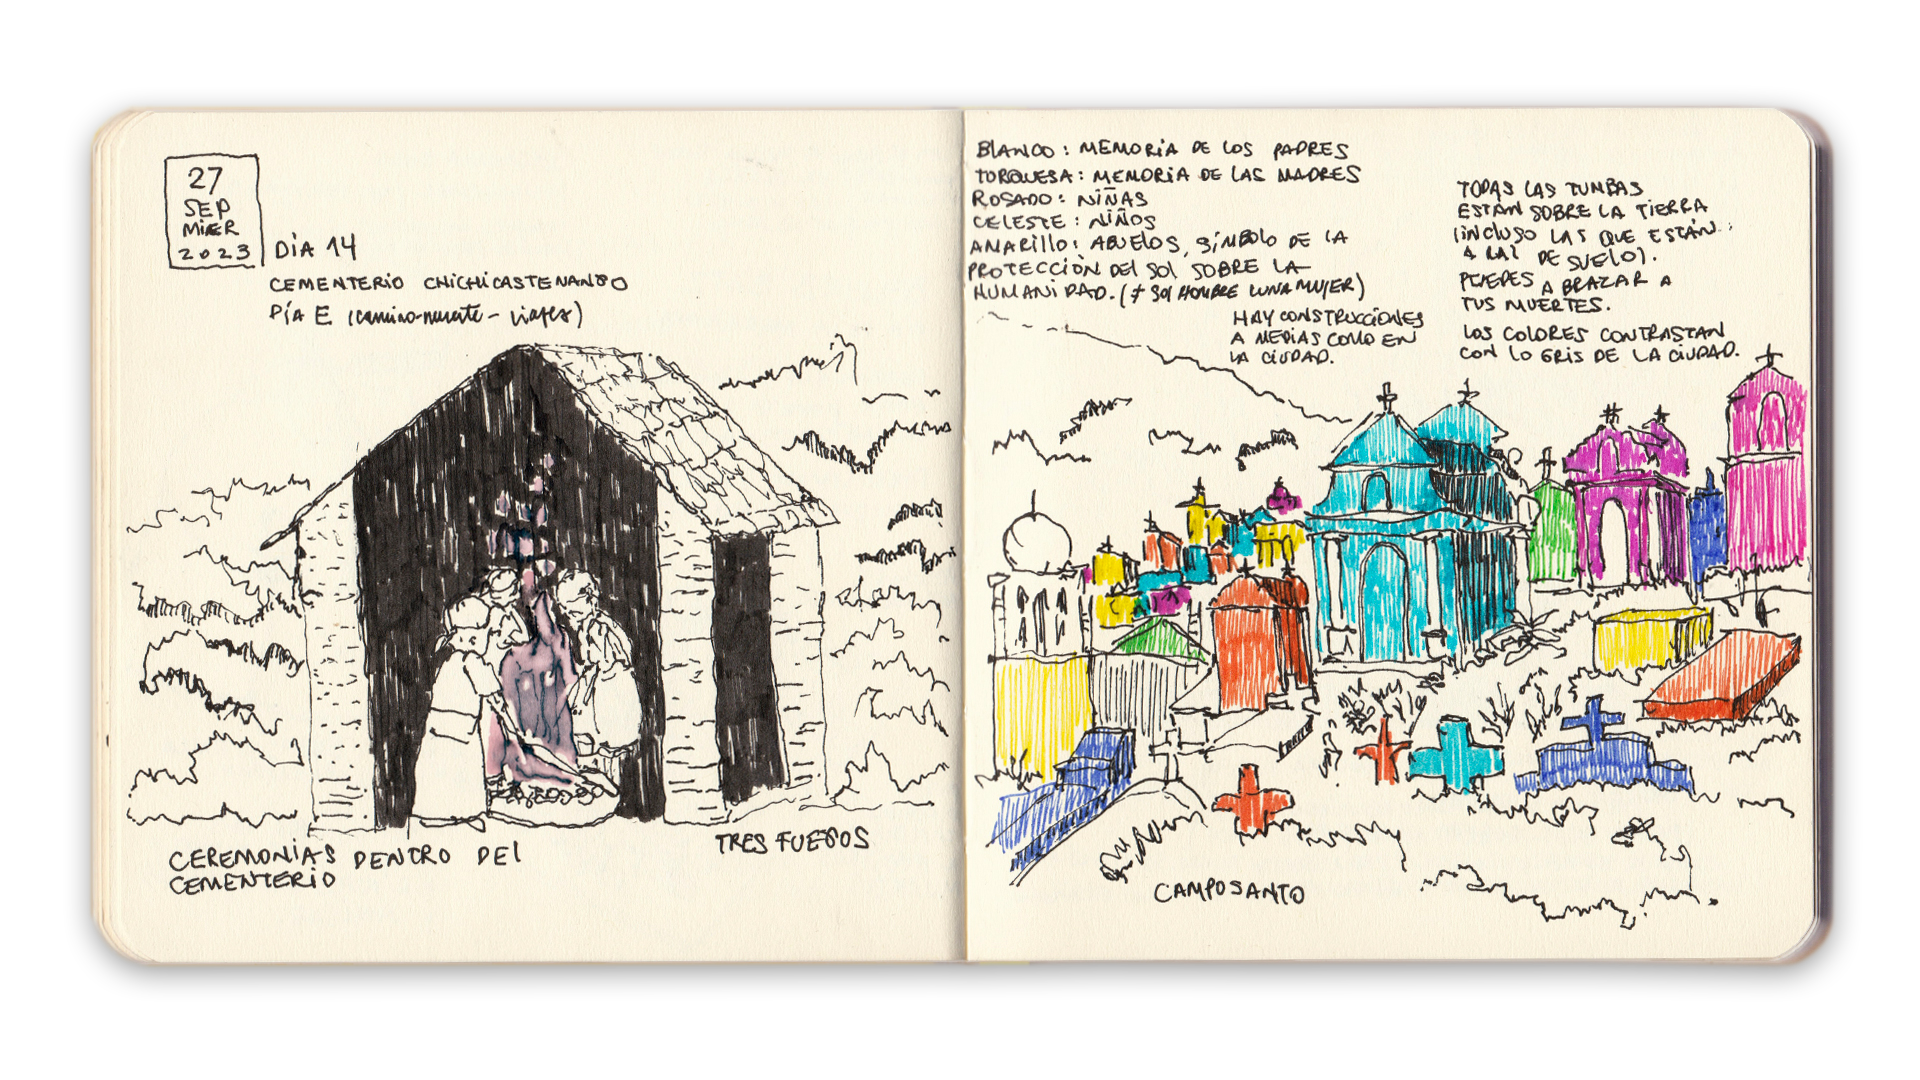 27
SEP
MIER
2023
DÍA 14
CEMENTERIO CHICHICASTENANGO
DÍA E (camino-muerte - viajes)
CEREMONIAS DENTRO DEL
CEMENTERIO
TRES FUEGOS
BLANCO: MEMORIA DE LOS PADRES
TORQUESA: MEMORIA DE LAS MADRES
ROSADO: NIÑAS
CELESTE: NIÑOS
AMARILLO: ABUELOS, SÍMBOLO DE LA
PROTECCIÓN DEL SOL SOBRE LA
HUMANIDAD. (≠ SOL HOMBRE LUNA MUJER)
HAY CONSTRUCCIONES
A MEDIAS COMO EN
LA CIUDAD.
TODAS LAS TUMBAS
ESTÁN SOBRE LA TIERRA
(INCLUSO LAS QUE ESTÁN
A RAÍ DE SUELO).
PUEDES ABRAZAR A
TUS MUERTES.
LOS COLORES CONTRASTAN
CON LO GRIS DE LA CIUDAD.
CAMPOSANTO